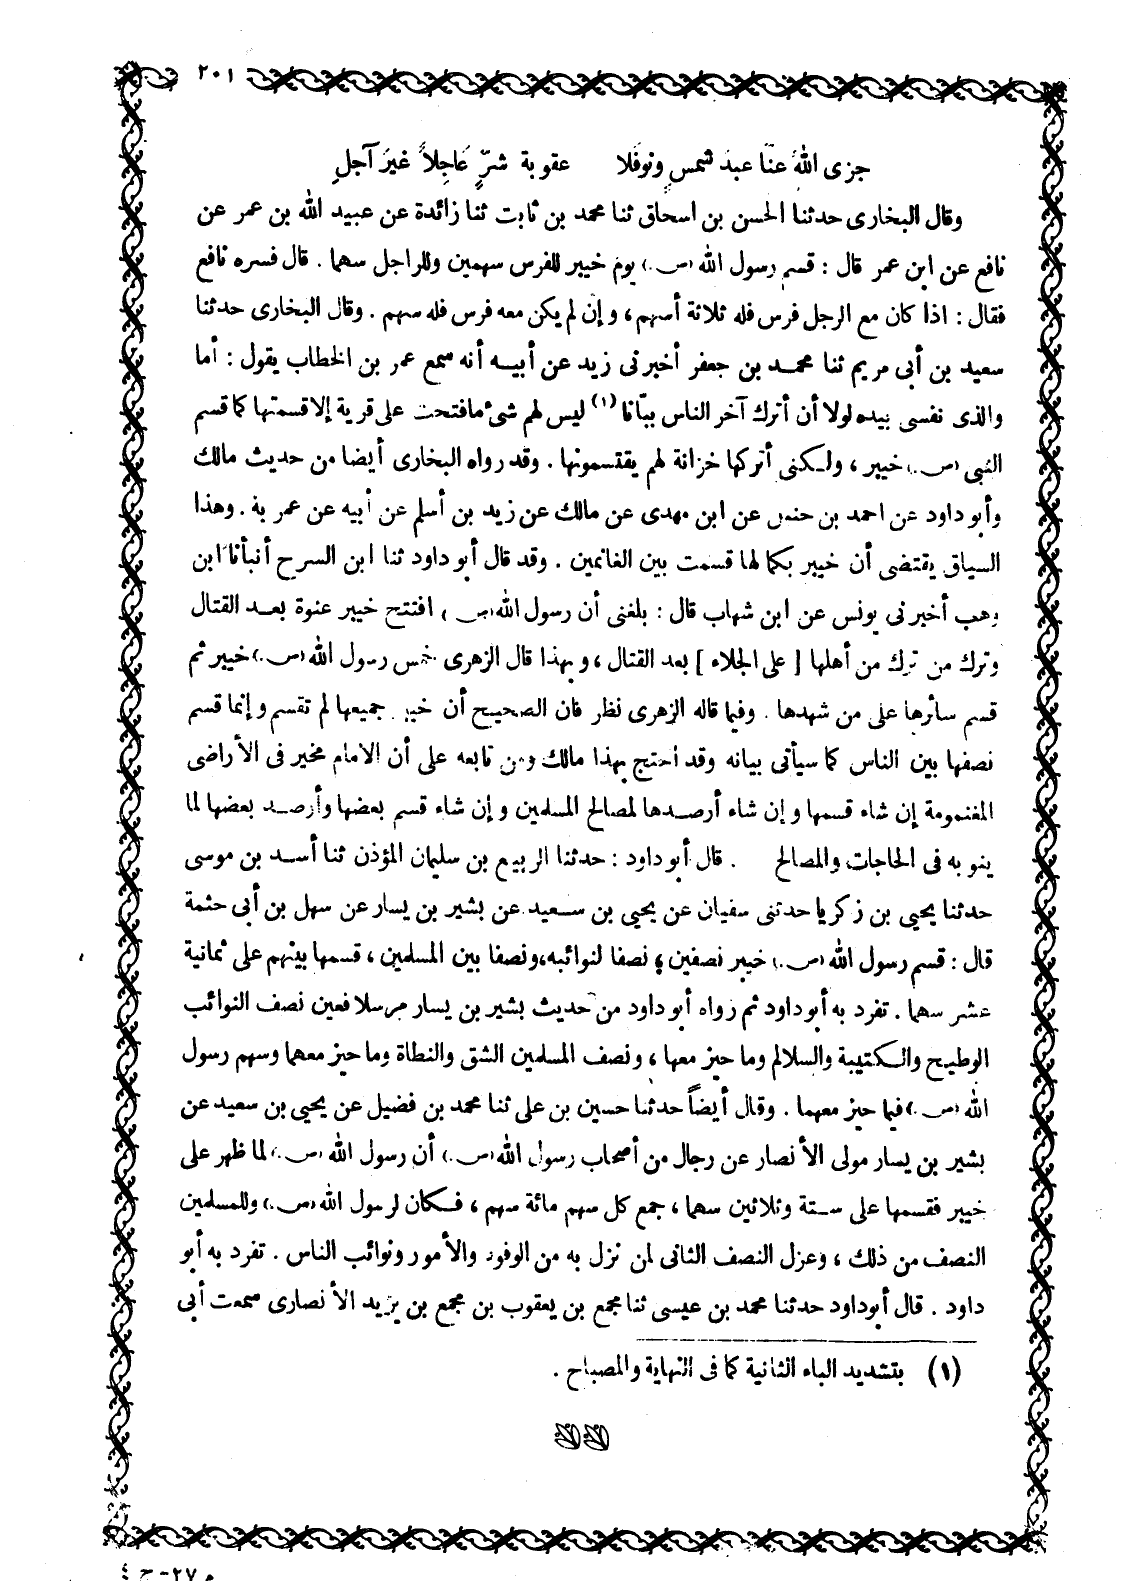 ٢٠١
جزى اللهُ عنّا عبدَ شمسٍ ونوفلا عقوبة شرٍّ عَاجِلاً غيرَ آجلِ
وقال البخارى حدثنا الحسن بن اسحاق ثنا محمد بن ثابت ثنا زائدة عن عبيد الله بن عمر عن
نافع عن ابن عمر قال : قسم رسول الله (ص.) يوم خيبر للفرس سهمين وللراجل سهما . قال فسره نافع
فقال : اذا كان مع الرجل فرس فله ثلاثة أسهم ، و إن لم يكن معه فرس فله سهم . وقال البخارى حدثنا
سعيد بن أبى مريم ثنا محمد بن جعفر أخبرنى زيد عن أبيه أنه سمع عمر بن الخطاب يقول : أما
والذى نفسى بيده لولا أن أترك آخر الناس ببّانا (١) ليس لهم شىء مافتحت على قرية إلا قسمتها كما قسم
النبى (ص.) خيبر ، ولكنى أتركها خزانة لهم يقتسمونها . وقد رواه البخارى أيضا من حديث مالك
وأبو داود عن احمد بن حنبل عن ابن مهدى عن مالك عن زيد بن أسلم عن أبيه عن عمر به . وهذا
السياق يقتضى أن خيبر بكمالها قسمت بين الغانمين . وقد قال أبو داود ثنا ابن السرح أنبأنا ابن
وهب أخبرنى يونس عن ابن شهاب قال : بلغنى أن رسول الله (ص.) افتتح خيبر عنوة بعد القتال
وترك من ترك من أهلها [ على الجلاء ] بعد القتال ، و بهذا قال الزهرى خمس رسول الله (ص.) خيبر ثم
قسم سائرها على من شهدها . وفيما قاله الزهرى نظر فان الصحيح أن خيبر جميعها لم تقسم و إنما قسم
نصفها بين الناس كما سيأتى بيانه وقد احتج بهذا مالك ومن تابعه على أن الامام مخير فى الأراضى
المغنمومة إن شاء قسمها و إن شاء أرصدها لمصالح المسلمين و إن شاء قسم بعضها وأرصد بعضها لما
ينو به فى الحاجات والمصالح . قال أبو داود : حدثنا الربيع بن سليمان المؤذن ثنا أسد بن موسى
حدثنا يحيى بن زكريا حدثنى سفيان عن يحيى بن سعيد عن بشير بن يسار عن سهل بن أبى حثمة
قال : قسم رسول الله (ص.) خيبر نصفين ؛ نصفا لنوائبه، ونصفا بين المسلمين ، قسمها بينهم على ثمانية
عشر سهما . تفرد به أبو داود ثم رواه أبو داود من حديث بشير بن يسار مرسلا فعين نصف النوائب
الوطيح والكتيبة والسلالم وما حيز معها ، ونصف المسلمين الشق والنطاة وما حيز معهما وسهم رسول
الله (ص.) فيما حيز معهما . وقال أيضاً حدثنا حسين بن على ثنا محمد بن فضيل عن يحيى بن سعيد عن
بشير بن يسار مولى الأنصار عن رجال من أصحاب رسول الله (ص.) أن رسول الله (ص.) لما ظهر على
خيبر فقسمها على ستة وثلاثين سهما ، جمع كل سهم مائة سهم ، فكان لرسول الله (ص.) وللمسلمين
النصف من ذلك ، وعزل النصف الثانى لمن نزل به من الوفود والأمور ونوائب الناس . تفرد به أبو
داود . قال أبو داود حدثنا محمد بن عيسى ثنا مجمع بن يعقوب بن مجمع بن يزيد الأنصارى سمعت أبى
(١) بتشديد الباء الثانية كما فى النهاية والمصباح .
م ٢٧ - ج ٤